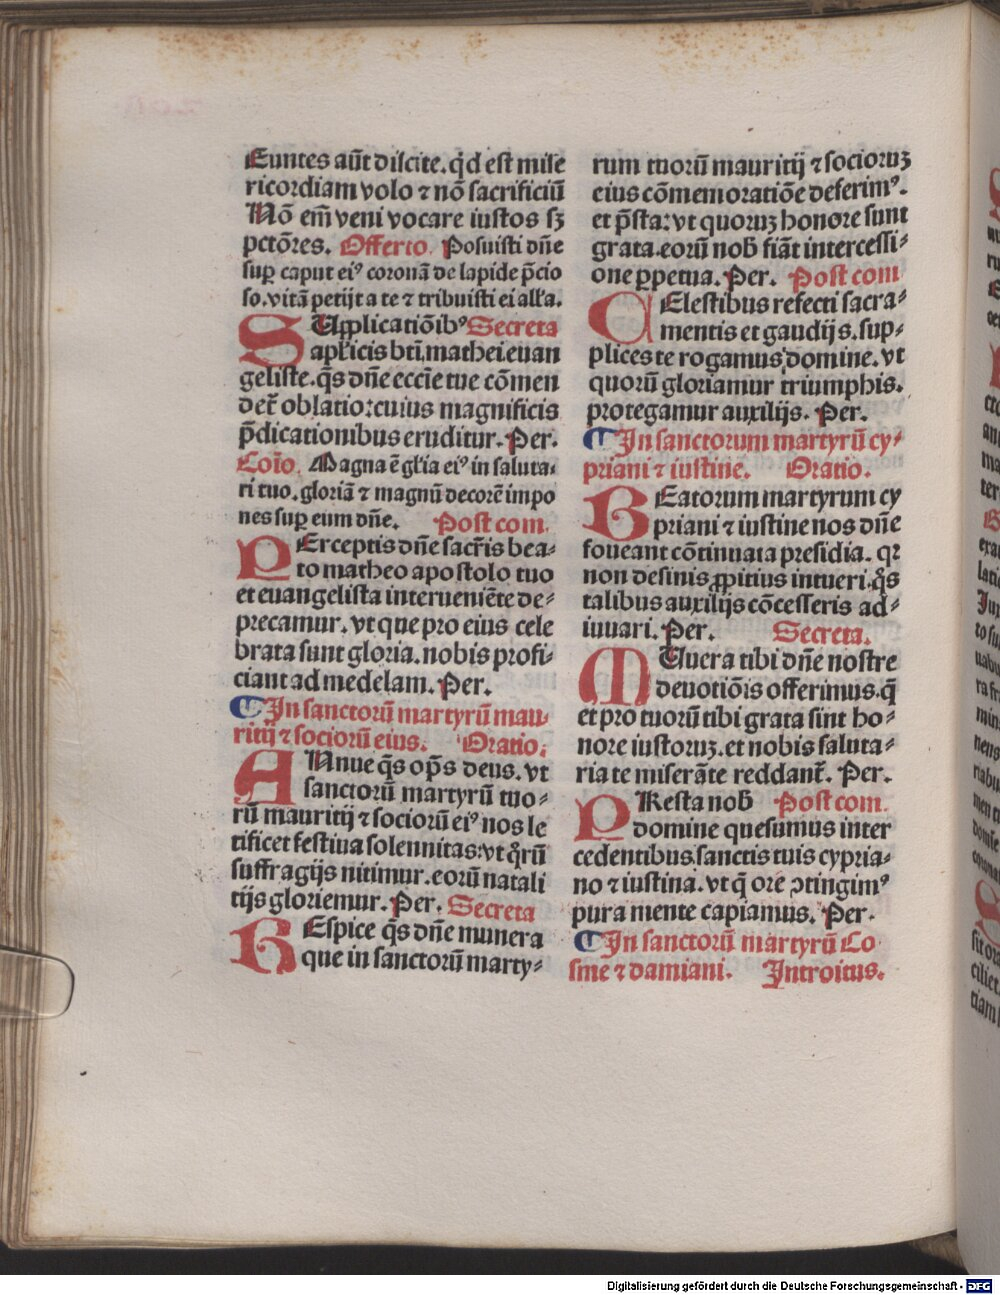 Euntes aūt discite. qd̄ est mise
ricordiam volo ⁊ nō sacrificiū
Nō em̄ veni vocare iustos sꝫ
pctōres. Offerto. Posuisti dn̄e
sup̱ caput eiꝰ coronā de lapide p̄cio
so. vitā petijt a te ⁊ tribuisti ei all'a.
SUpplicatiōibꝰ Secreta
apl'icis bt̄i mathei euan
geliste. q̄s dn̄e eccl'ie tue cōmen
det᷑ oblatio: cuius magnificis
p̄dicationibus eruditur. Per.
Coīo. Magna ē gl'ia eiꝰ in saluta-
ri tuo. gloriā ⁊ magnū decorē impo
nes sup̱ eum dn̄e. Post com.
PErceptis dn̄e sacr̄is bea-
to matheo apostolo tuo
et euangelista interueniēte de-
precamur. vt que pro eius cele
brata sunt gloria. nobis profi-
ciant ad medelam. Per.
¶ In sanctorū martyrū mau
ritij ⁊ sociorū eius. Oratio.
ANnue q̄s op̄s deus. vt
sanctorū martyrū tuo-
rū mauritij ⁊ sociorū eiꝰ nos le
tificet festiua solennitas: vt qͦrū
suffragijs nitimur. eorū natali
tijs gloriemur. Per. Secreta
REspice q̄s dn̄e munera
que in sanctorū marty-
rum tuorū mauritij ⁊ socioruꝫ
eius cōmemoratiōe deferimꝰ.
et p̄sta: vt quoruꝫ honore sunt
grata. eorū nob̄ fiāt intercessi-
one ꝑpetua. Per. Post com
CElestibus refecti sacra-
mentis et gaudijs. sup-
plices te rogamus domine. vt
quorū gloriamur triumphis.
protegamur auxilijs. Per.
¶ In sanctorum martyrū cy-
priani ⁊ iustine. Oratio.
BEatorum martyrum cy
priani ⁊ iustine nos dn̄e
foueant cōtinuata presidia. qꝛ
non desinis ꝓpitius intueri. qͦs
talibus auxilijs cōcesseris ad-
iuuari. Per. Secreta.
MUnera tibi dn̄e nostre
deuotiōis offerimus. q̄
et pro tuorū tibi grata sint ho-
nore iustoruꝫ. et nobis saluta-
ria te miserāte reddant᷑. Per.
PResta nob̄ Post com.
domine quesumus inter
cedentibus sanctis tuis cypria-
no ⁊ iustina. vt q̄ ore ↄtingimꝰ
pura mente capiamus. Per.
¶ In sanctorū martyrū Co
sme ⁊ damiani. Introitus.
Digitalisierung gefördert durch die Deutsche Forschungsgemeinschaft - DFG